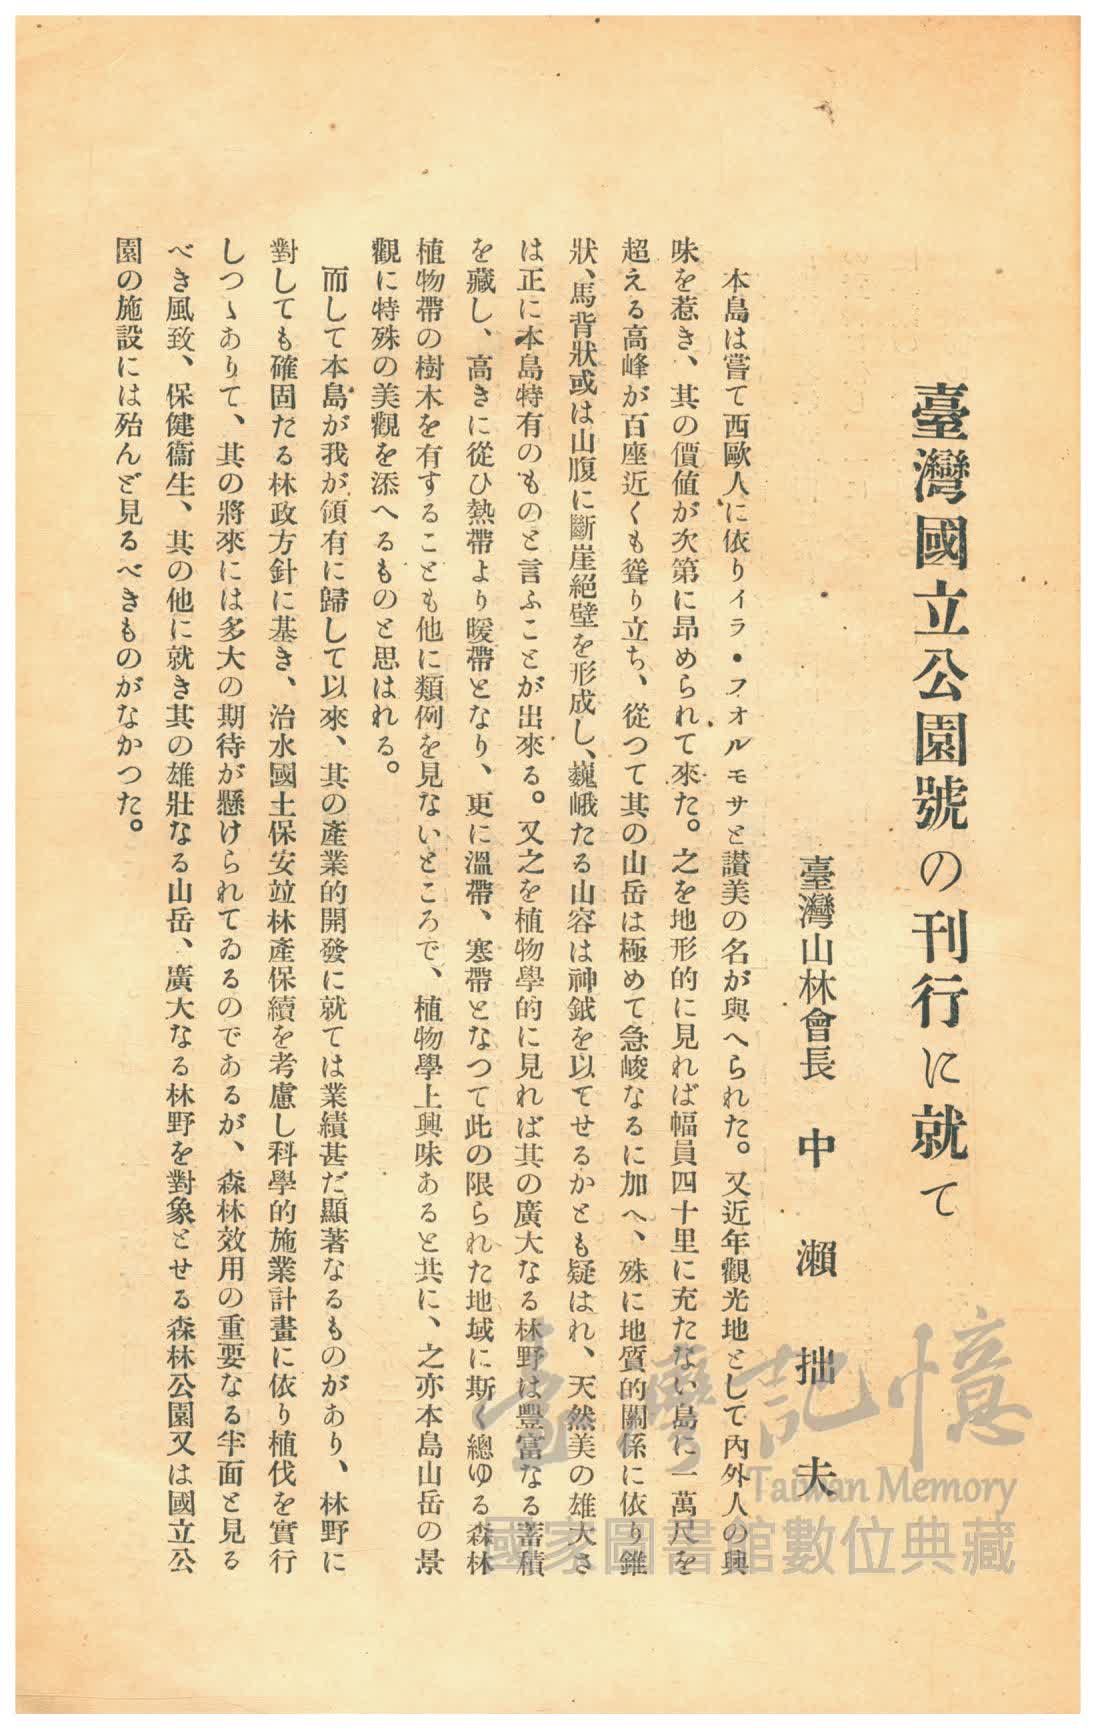 臺灣國立公園號の刊行に就て
臺灣山林會長 中瀨拙夫
本島は嘗て西歐人に依りイラ・フオルモサと讃美の名が與へられた。又近年觀光地として內外人の興
味を惹き、其の價値が次第に昻められて來た。之を地形的に見れば幅員四十里に充たない島に一萬尺を
超える高峰が百座近くも聳り立ち、從つて其の山岳は極めて急峻なるに加へ、殊に地質的關係に依り錐
狀、馬背狀或は山腹に斷崖絕壁を形成し、巍峨たる山容は神鉞を以てせるかとも疑はれ、天然美の雄大さ
は正に本島特有のものと言ふことが出來る。又之を植物學的に見れば其の廣大なる林野は豐富なる蓄積
を藏し、高きに從ひ熱帶より暖帶となり、更に溫帶、寒帶となつて此の限られた地域に斯く總ゆる森林
植物帶の樹木を有することも他に類例を見ないところで、植物學上興味あると共に、之亦本島山岳の景
觀に特殊の美觀を添へるものと思はれる。
而して本島が我が領有に歸して以來、其の產業的開發に就ては業績甚だ顯著なるものがあり、林野に
對しても確固たる林政方針に基き、治水國土保安竝林產保續を考慮し科學的施業計畫に依り植伐を實行
しつゝありて、其の將來には多大の期待が懸けられてゐるのであるが、森林效用の重要なる半面と見る
べき風致、保健衞生、其の他に就き其の雄壯なる山岳、廣大なる林野を對象とせる森林公園又は國立公
園の施設には殆んど見るべきものがなかつた。
臺灣記憶
Taiwan Memory
國家圖書館數位典藏